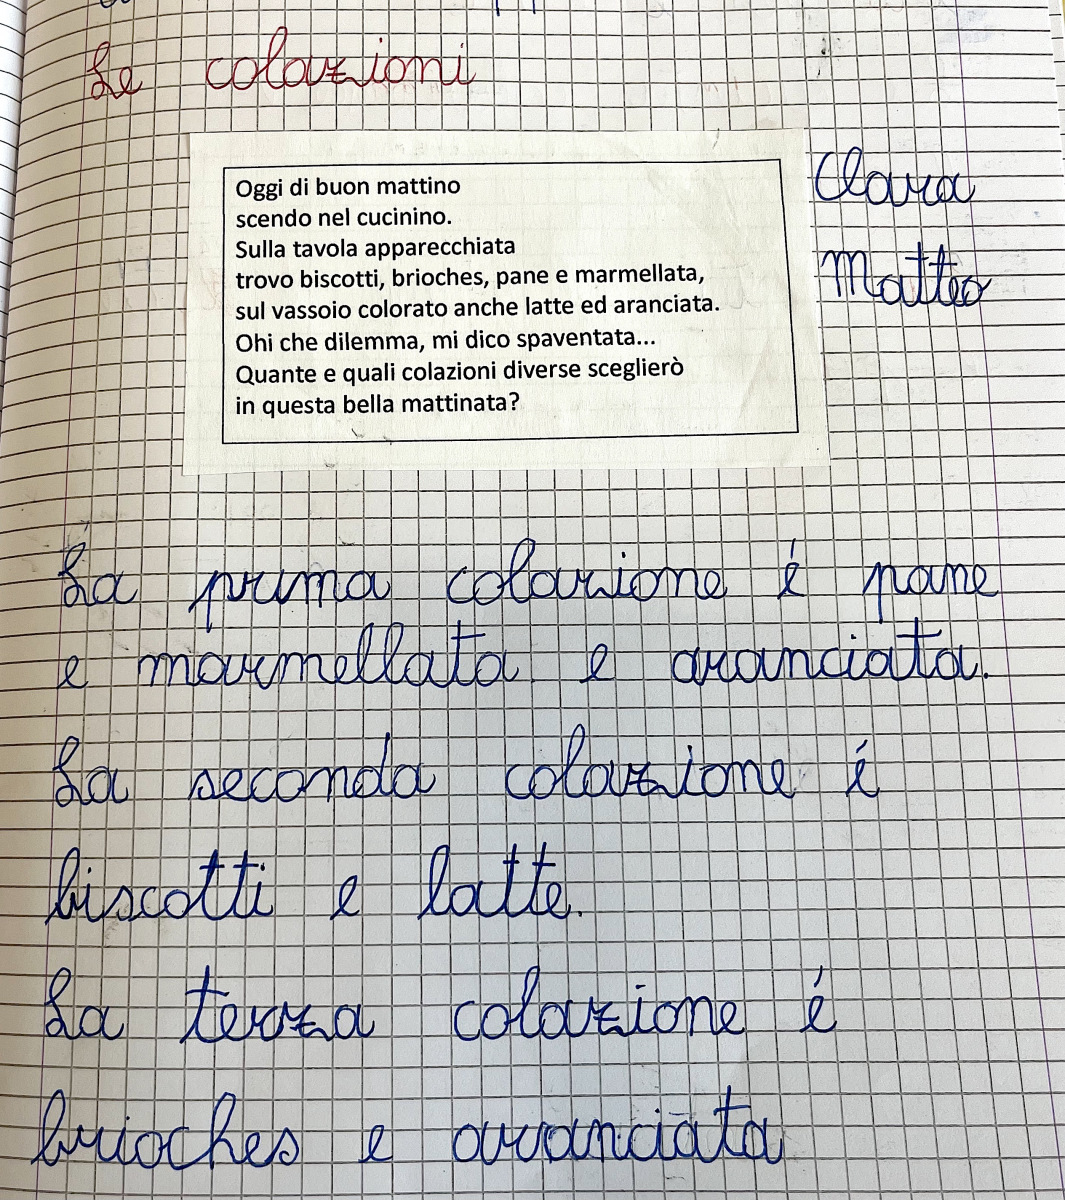 Le colazioni
Oggi di buon mattino
scendo nel cucinino.
Sulla tavola apparecchiata
trovo biscotti, brioches, pane e marmellata,
sul vassoio colorato anche latte ed aranciata.
Ohi che dilemma, mi dico spaventata...
Quante e quali colazioni diverse sceglierò
in questa bella mattinata?
Clara
Matteo
La prima colazione é pane
e marmellata e aranciata.
La seconda colazione é
biscotti e latte.
La terza colazione é
brioches e aranciata